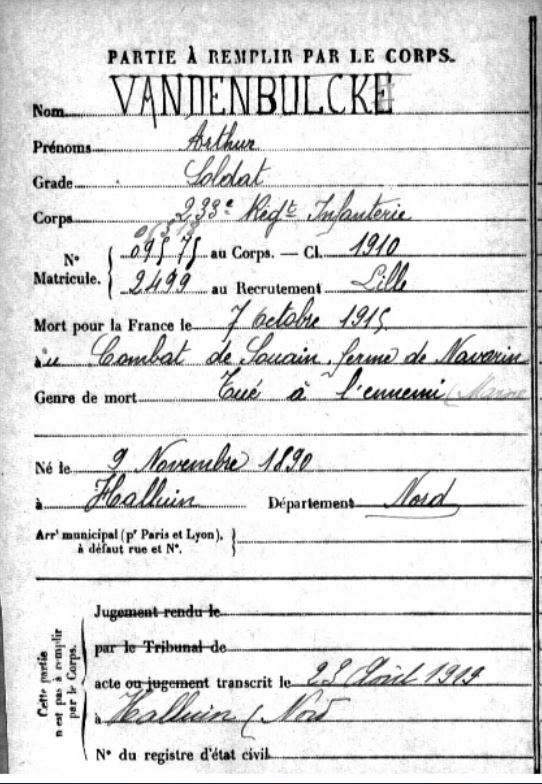 PARTIE À REMPLIR PAR LE CORPS.
Nom VANDENBULCKE
Prénoms Arthur
Grade Soldat
Corps 233e Régt Infanterie
N° Matricule. { 09575 au Corps. — Cl. 1910
2499 au Recrutement Lille
Mort pour la France le 7 Octobre 1915
au Combat de Souain, ferme de Navarin
Genre de mort Tué à l'ennemi (Marne
Né le 9 Novembre 1890
à Halluin Département Nord
Arrt municipal (pr Paris et Lyon), }
à défaut rue et N°.
Cette partie n'est pas à remplir par le Corps.
Jugement rendu le
par le Tribunal de
acte ou jugement transcrit le 23 Août 1919
à Halluin (Nord
N° du registre d'état civil